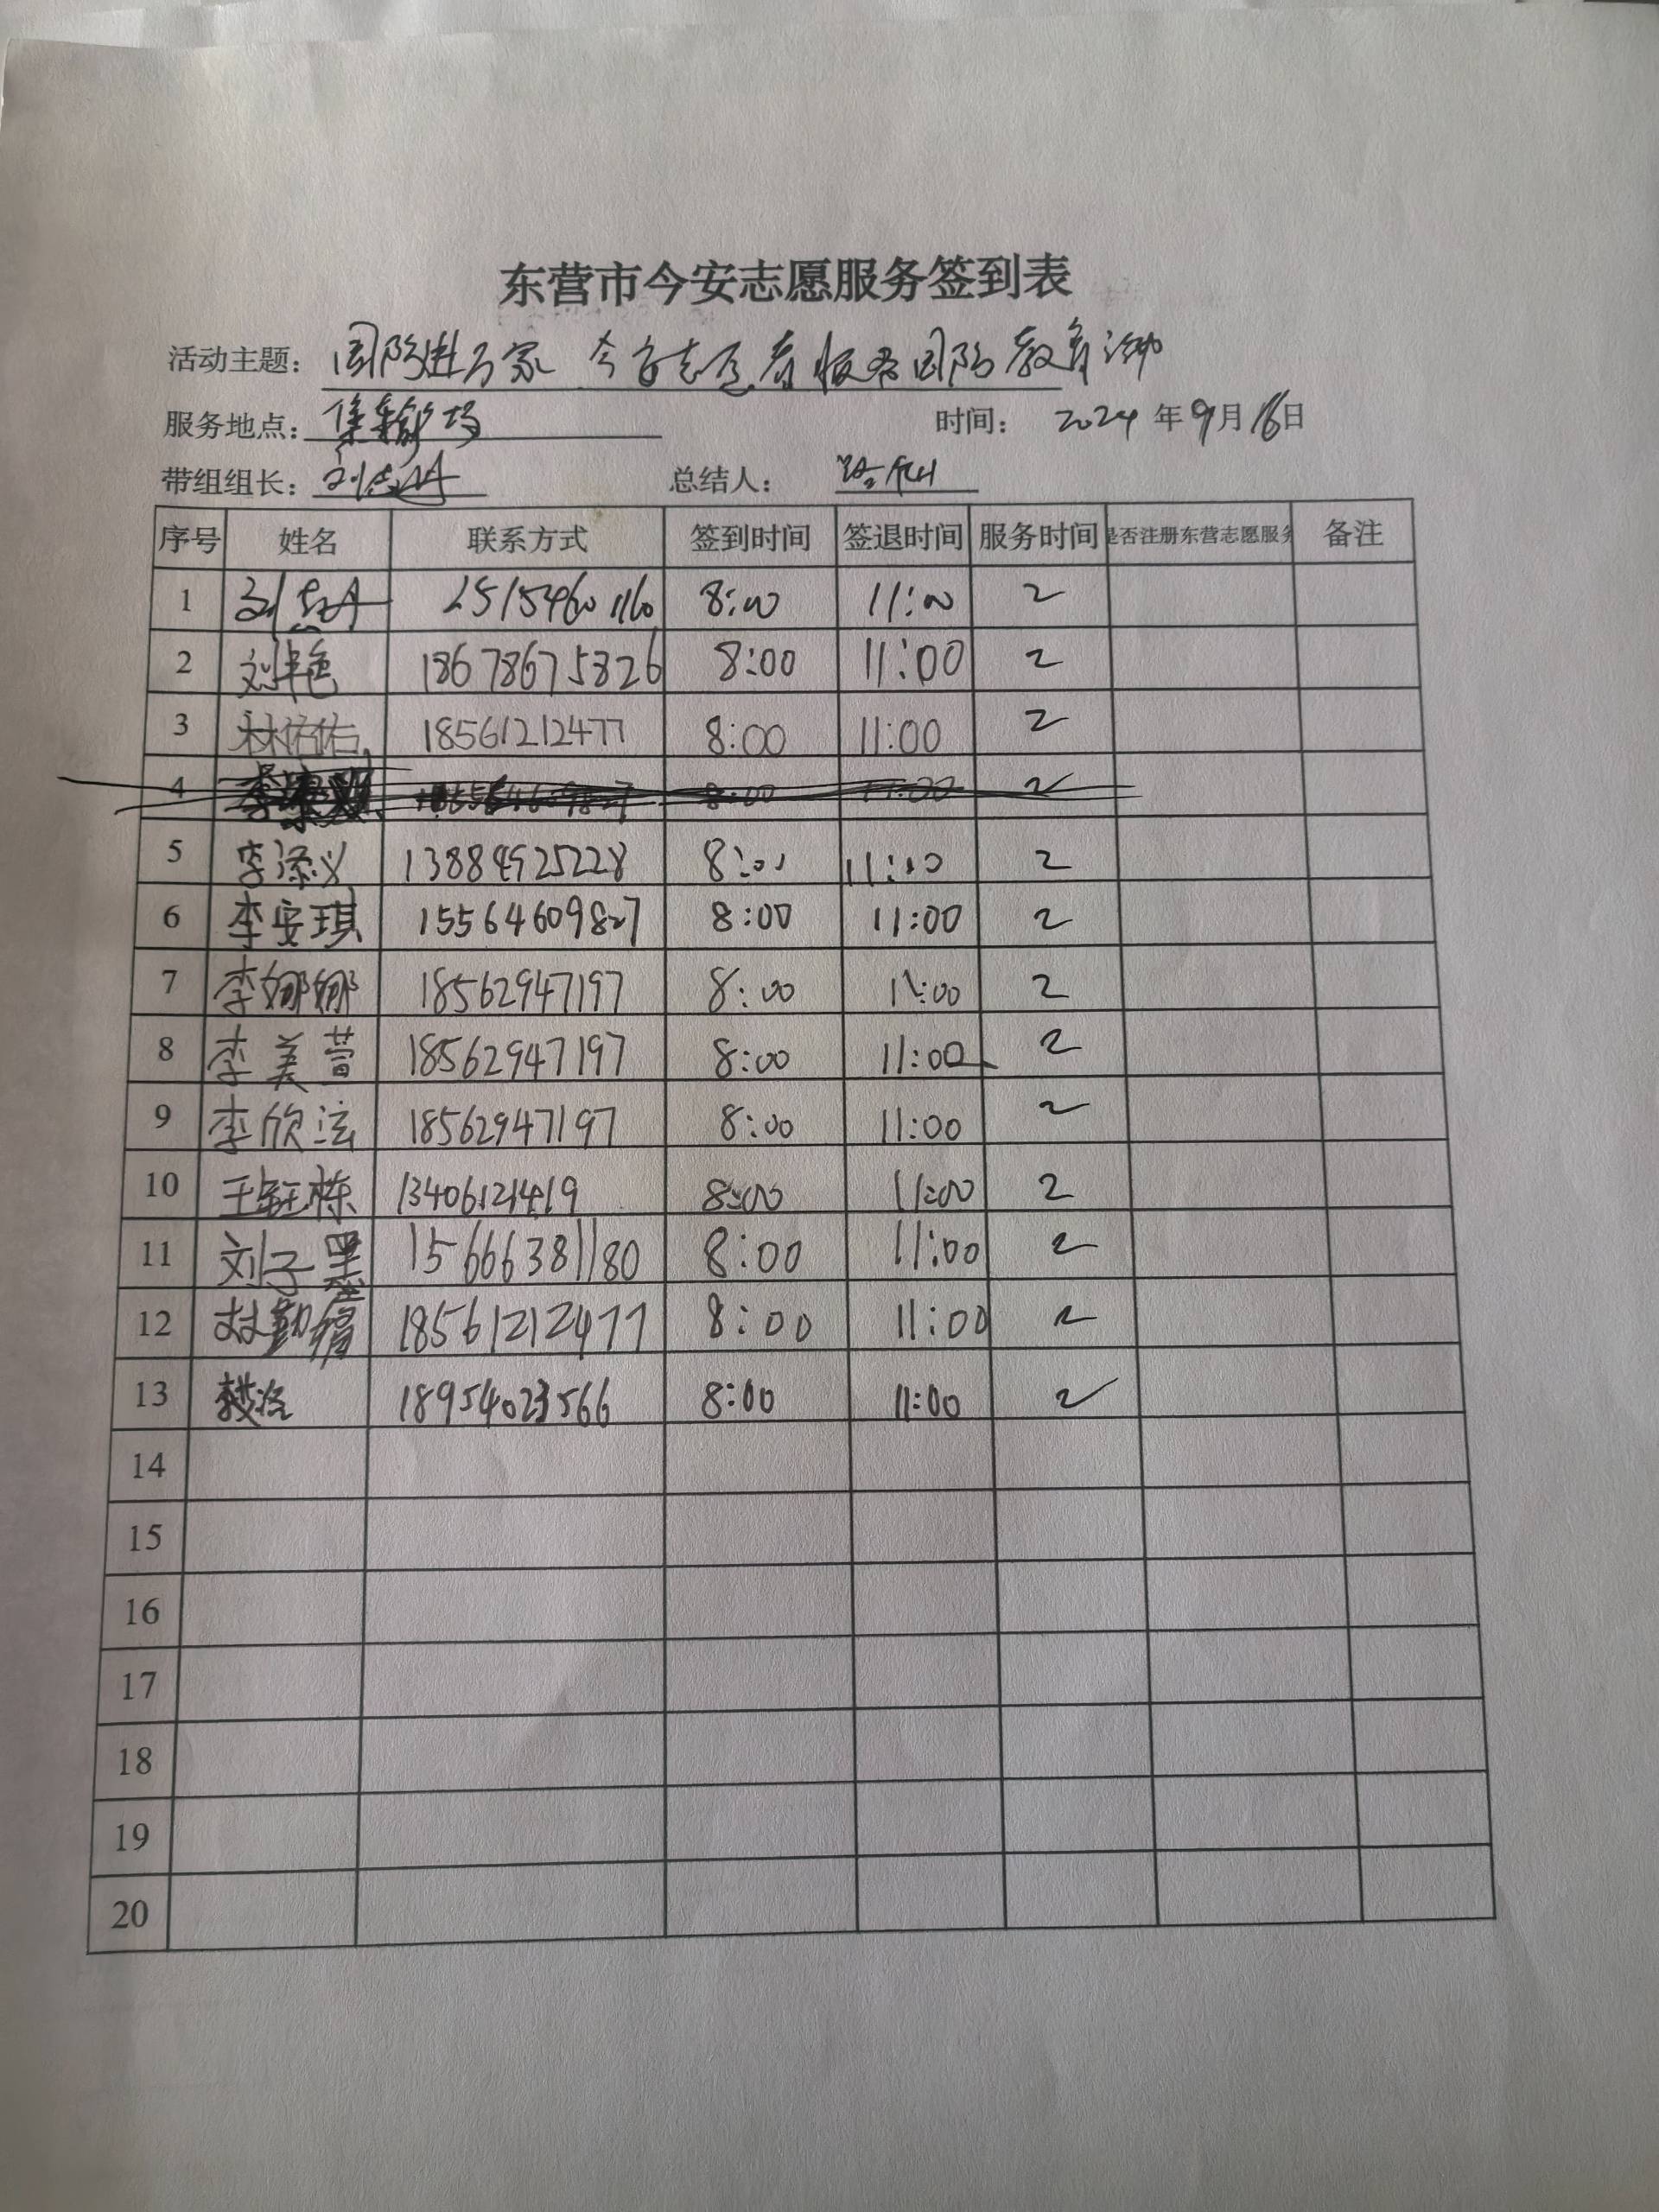 东营市今安志愿服务签到表
活动主题: 国防进万家 今安志愿者服务国防教育活动
服务地点: 集输广场 时间: 2024年9月16日
带组组长: 刘 总结人:
序号 姓名 联系方式 签到时间 签退时间 服务时间 是否注册东营志愿服务 备注
1 刘 8:00 11:00 2
2 刘艳 18678675826 8:00 11:00 2
3 林佑佑 18561212477 8:00 11:00 2
4 8:00 11:00 2
5 李添义 13884925228 8:00 11:00 2
6 李安琪 15564609827 8:00 11:00 2
7 李娜娜 18562947197 8:00 11:00 2
8 李美萱 18562947197 8:00 11:00 2
9 李欣泫 18562947197 8:00 11:00 2
10 王钰栋 13406121419 8:00 11:00 2
11 刘子墨 15666381180 8:00 11:00 2
12 林勤 18561212477 8:00 11:00 2
13 18954023566 8:00 11:00 2
14
15
16
17
18
19
20